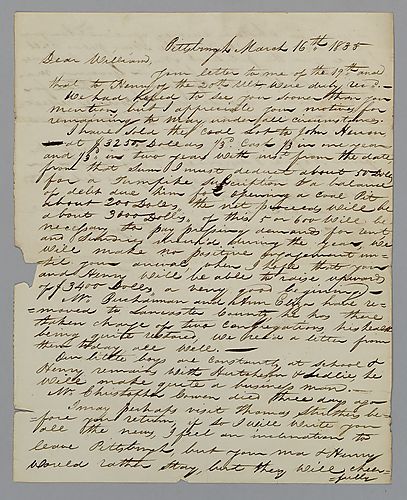 Pittsburgh March 16th 1835
Dear William,
Your letter to me of the 19th and
that to Henry of the 20th Ult were duly rec'd.
We had hoped to see you sooner than you
mention but I appreciate your motives for
remaining to May, under all circumstances.
I have sold the Coal Lot to John Herron
at $3250 Dollars ⅓ Cash ⅓ in one year
and ⅓ in two years with int from the date
from that sum I must deduct about 50 Dolls
for a turnpike subscription & a balance
of debt due him for opening a Coal Pit
about 200 Doles, the net proceeds will be
about 3000 Dolls, of this 5 or 600 will be
necessary to pay pressing demands for rent
and incurred during the year, we
will make no positive engagement un-
til you arrive, when I hope that you
and Henry will be able to raise upwards
of $3400 Dolls, a very good beginning
Mr. Buchanan and Ann Eliza have re-
=moved to Lancaster County, he has there
taken charge of two Congregations, his health
being quite restored. We had a letter from
them to day all well
Our little boys are constantly at school &
Henry remains with Hutchison & he
will make quite a business man.
Mr Christopher Cowan died three days ago
I may perhaps visit Thomas Struthers be-
=fore your return, if so I will write you
all the news, I feel an inclination to
leave Pittsburgh but your ma & Henry
would rather stay, but they will cheer-
=fully